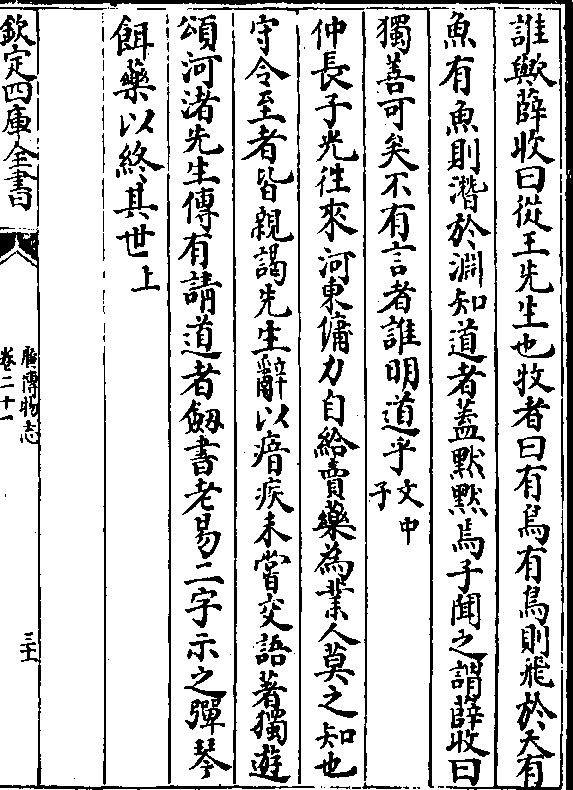 誰歟薛收曰從王先生也牧者曰有鳥有鳥則飛於天有
魚有魚則潛於淵知道者蓋默默焉子聞之謂薛收曰
獨善可矣不有言者誰明道乎文中子
仲長子光往來河東傭力自給賣藥為業人莫之知也
守令至者皆親謁先生辭以瘖疾未嘗交語著獨遊
頌河渚先生傳有請道者劒書老易二字示之彈琴
餌藥以終其世上
欽定四庫全書
廣博物志
卷二十一
三十